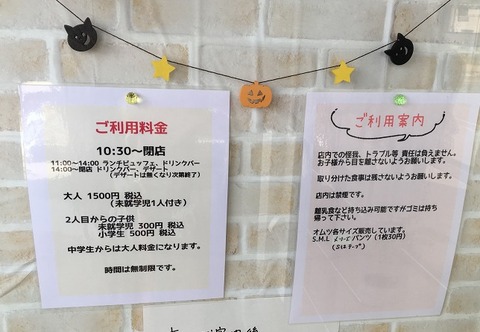 ご利用料金
10:30~閉店
11:00~14:00 ランチビュッフェ、ドリンクバー
14:00~閉店 ドリンクバー、デザート
(デザートは無くなり次第終了)
大人 1500円 税込
(未就学児1人付き)
2人目からの子供
未就学児 300円 税込
小学生 500円 税込
中学生からは大人料金になります。
時間は無制限です。
ご利用案内
店内での怪我、トラブル等 責任は負えません。
お子様から目を離さないようお願いします。
取り分けた食事は残さないようお願いします。
店内は禁煙です。
離乳食など持ち込み可能ですがゴミは持ち
帰って下さい。
オムツ各サイズ販売しています。
S.M.L パンツ(1枚30円)